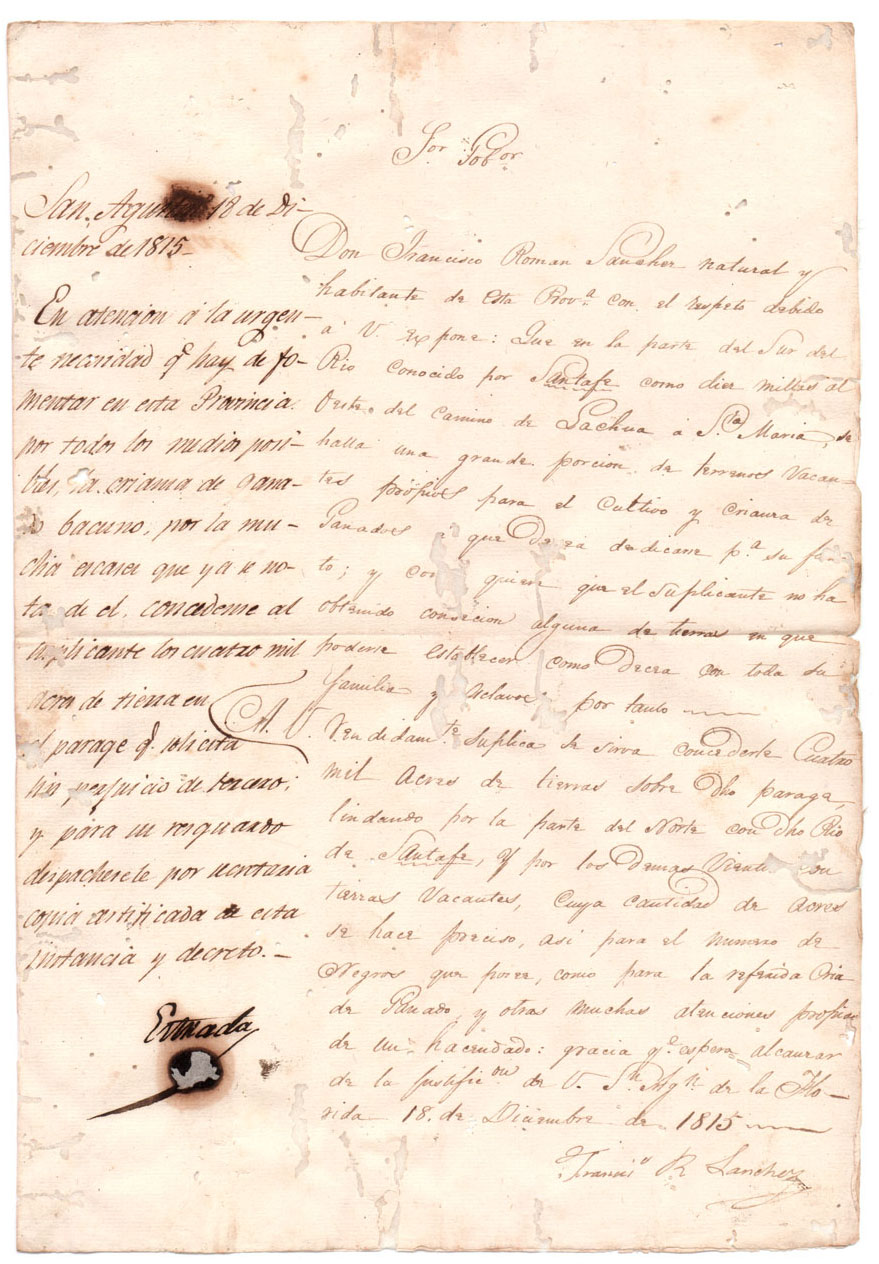 Sor Gobor
San Agustin 18 de Di-
ciembre de 1815-
En atencion á la urgen-
te necesidad q.e hay de fo-
mentar en esta Provincia
por todos los medios posi-
bles, la crianza de gana-
do bacuno, por la mu-
cha escases que ya se no-
ta de el, concedense al
suplicante los cuatro mil
acres de tierra en
el parage q.e solicita
sin perjuicio de tercero;
y para su resguardo
despachesele por secretaria
copia certificada de esta
instancia y decreto.-
Estrada
Don Francisco Roman Sanchez natural y
habitante de esta Prov.a con el respeto debido
á V. expone: Que en la parte del Sur del
Rio conocido por Santafe como diez millas al
Oeste del camino de Lachua á S.ta Maria, se
halla una grande porcion de terrenos Vacan-
tes própios para el cultivo y crianza de
Ganados á que desea dedicarse p.a su fin-
to; y como quiera que el Suplicante no ha
obtenido concecion alguna de tierras en que
poderse establecer como Decea con toda su
familia y esclavos por tanto
A. V. rendidam.te Suplica se sirva concederle Cuatro
mil Acres de tierras sobre dho parage,
lindando por la parte del Norte con dho Rio
de Santafe, y por los Demas Vientos con
tierras Vacantes, cuya cantidad de acres
se hace preciso, asi para el numero de
Negros que posee, como para la referida Cria
de Ganado, y otras muchas atenciones propias
de un hacendado: gracia q.e espera alcanzar
de la Justific.on de V. S.n Ag.n de la Flo-
rida 18 de Diciembre de 1815
Franc.o R. Sanchez